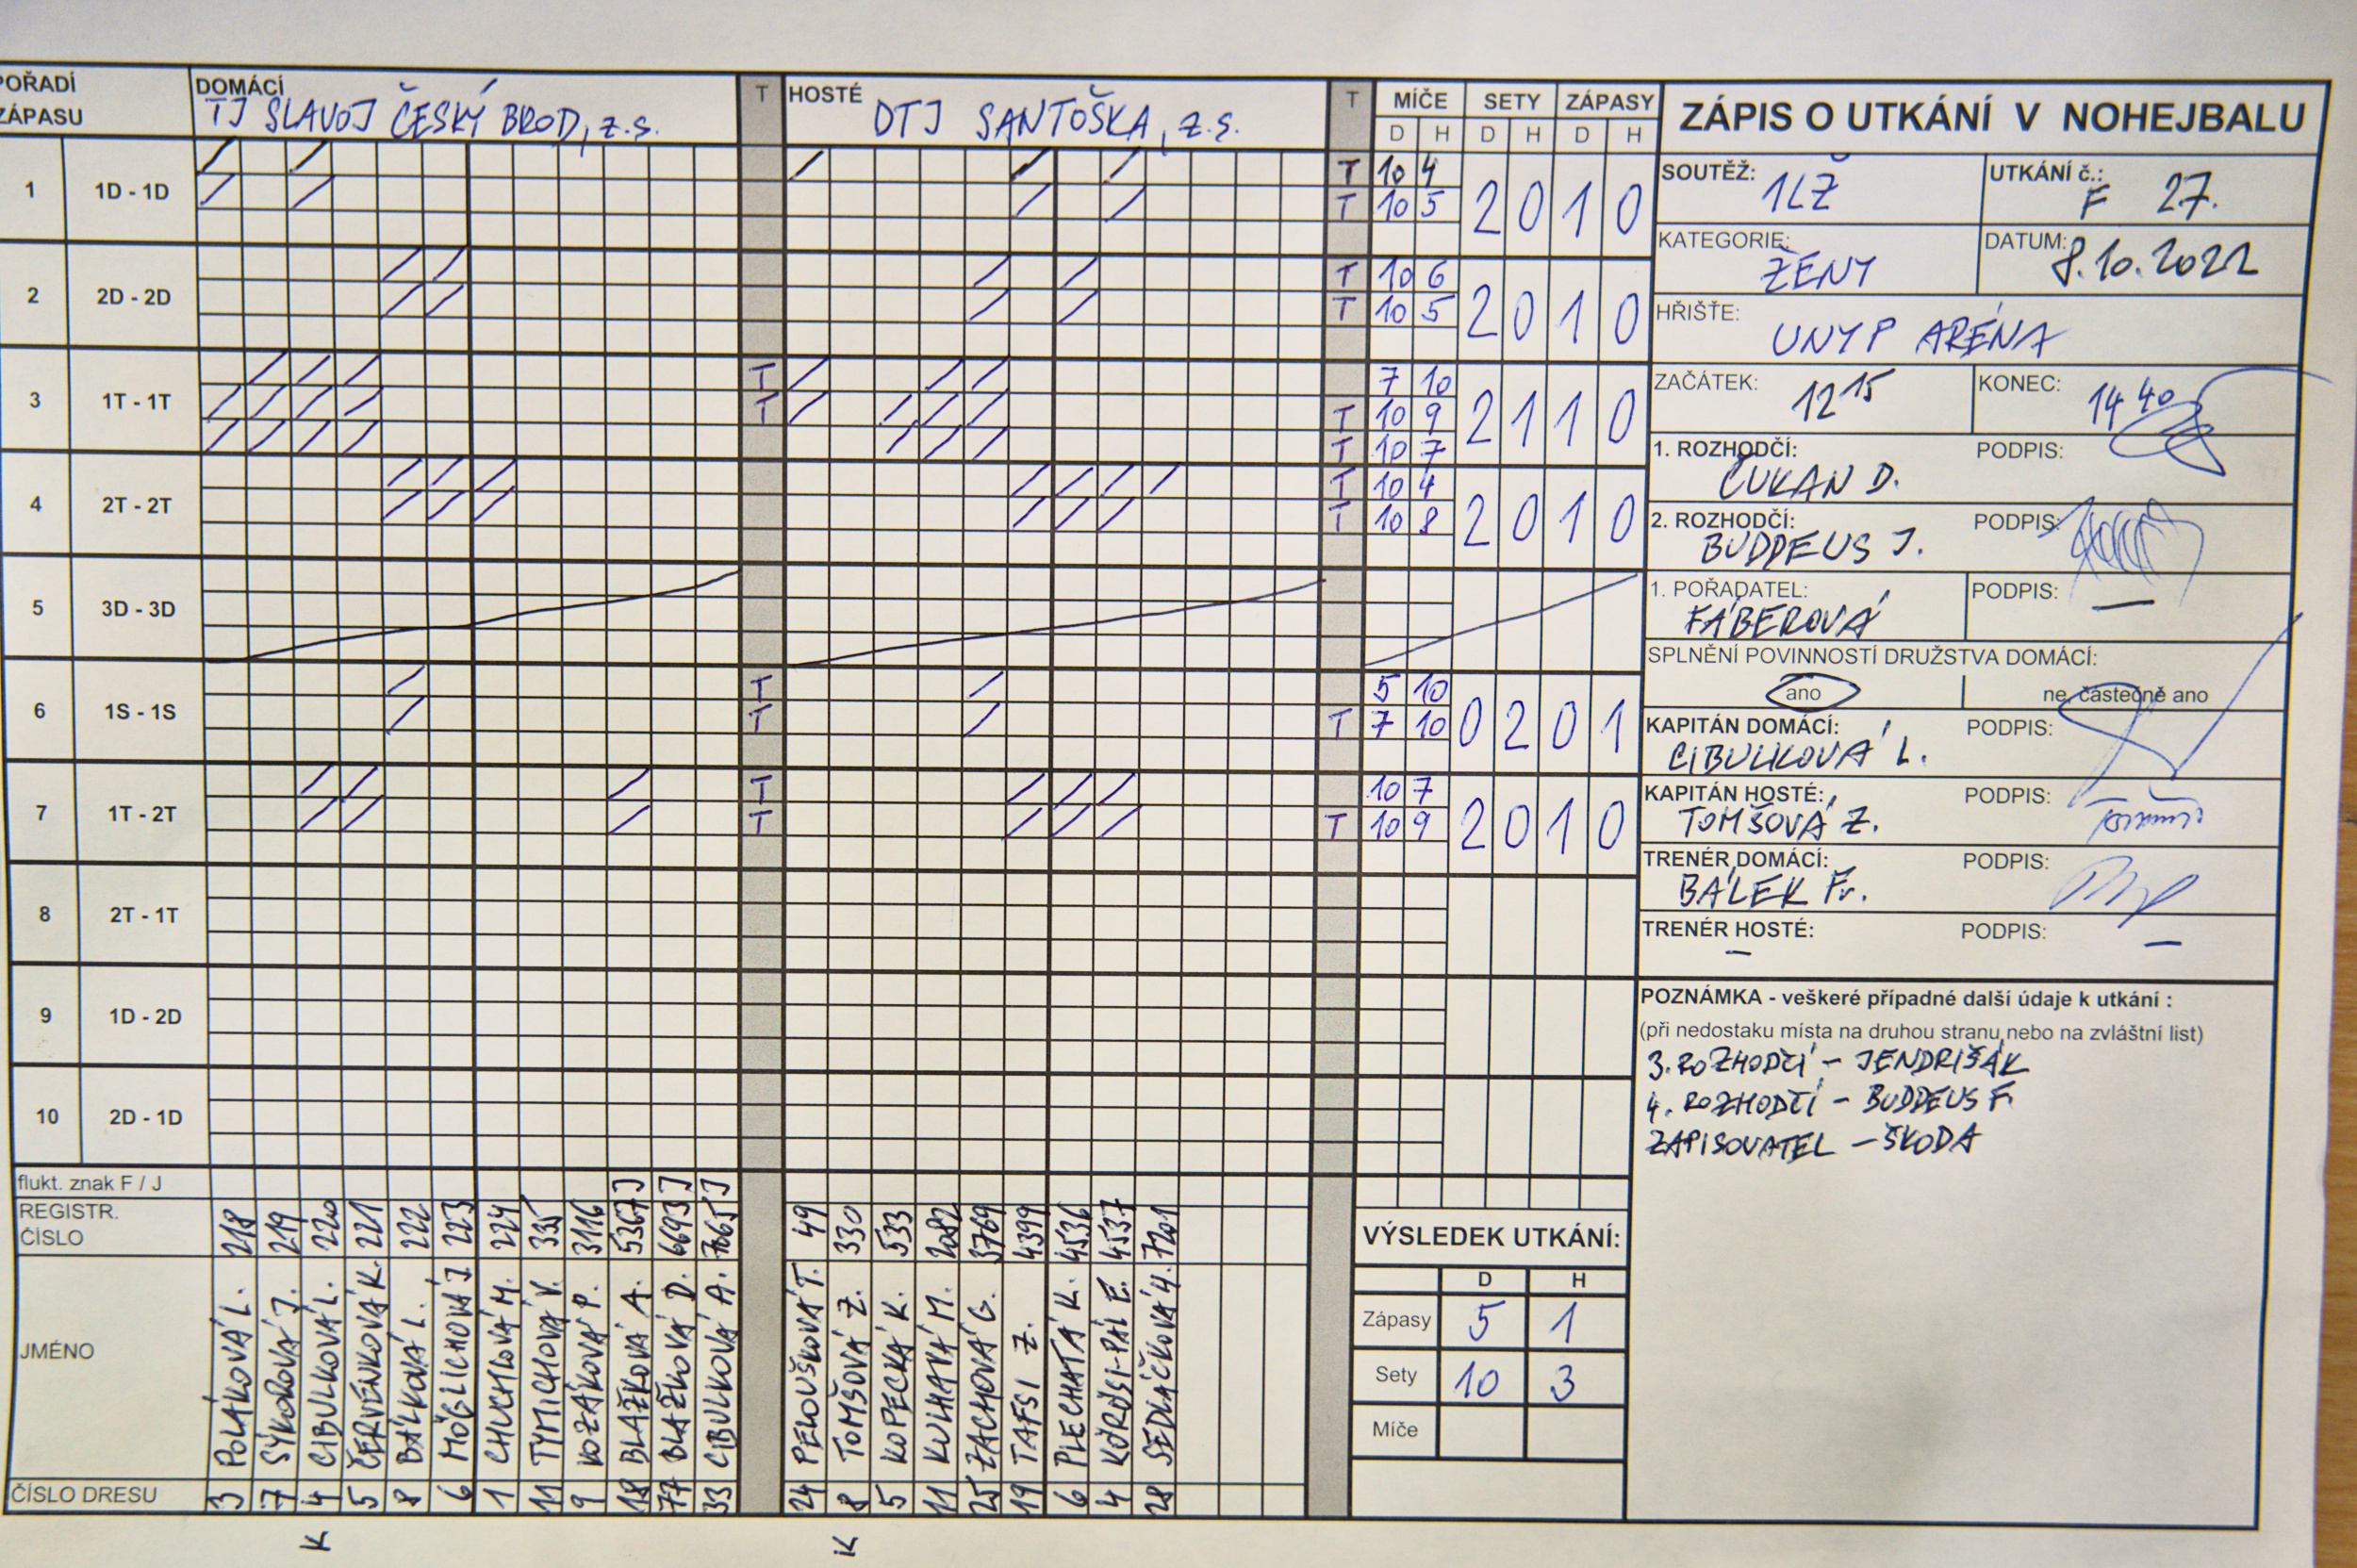 POŘADÍ ZÁPASU
DOMÁCÍ
TJ SLAVOJ ČESKÝ BROD, z.s.
T
HOSTÉ
DTJ SANTOŠKA, z.s.
T
MÍČE SETY ZÁPASY
D H D H D H
1 1D - 1D
T 10 4
T 10 5
2 0 1 0
2 2D - 2D
T 10 6
T 10 5
2 0 1 0
3 1T - 1T
T 7 10
T T 10 9
T 10 7
2 1 1 0
4 2T - 2T
T 10 4
T 10 8
2 0 1 0
5 3D - 3D
6 1S - 1S
T 5 10
T T 7 10
0 2 0 1
7 1T - 2T
T 10 7
T T 10 9
2 0 1 0
8 2T - 1T
9 1D - 2D
10 2D - 1D
flukt. znak F / J
J J J
REGISTR. ČÍSLO
218 219 220 221 222 223 224 335 3116 5367 6693 7665
49 330 533 2082 3769 4399 4536 4537 7201
JMÉNO
POLÁKOVÁ L.
SÝKOROVÁ J.
CIBULKOVÁ L.
ČERVENKOVÁ K.
BÁLKOVÁ L.
MÖGLICHOVÁ J.
CHUCHLOVÁ M.
TYMICHOVÁ V.
KOZÁKOVÁ P.
BLAŽKOVÁ A.
BLAŽKOVÁ D.
CIBULKOVÁ A.
PELOUŠKOVÁ T.
TOMŠOVÁ Z.
KOPECKÁ K.
KULHAVÁ M.
ZACHOVÁ G.
TAFSI Z.
PLECHATÁ K.
KÖRÖSI-PÁL E.
SEDLÁČKOVÁ H.
ČÍSLO DRESU
3 7 4 5 8 6 1 11 9 18 77 33
24 8 5 11 25 19 6 4 28
K K
VÝSLEDEK UTKÁNÍ:
D H
Zápasy 5 1
Sety 10 3
Míče
ZÁPIS O UTKÁNÍ V NOHEJBALU
SOUTĚŽ: 1LŽ
UTKÁNÍ č.: F 27.
KATEGORIE: ŽENY
DATUM: 8.10.2022
HŘIŠTE: UNYP ARÉNA
ZAČÁTEK: 12 15
KONEC: 14 40
1. ROZHODČÍ: PODPIS:
ČUKAN D.
2. ROZHODČÍ: PODPIS:
BUDDEUS J.
1. POŘADATEL: PODPIS:
FÁBEROVÁ —
SPLNĚNÍ POVINNOSTÍ DRUŽSTVA DOMÁCÍ:
ano ne, částečně ano
KAPITÁN DOMÁCÍ: PODPIS:
CIBULKOVÁ L.
KAPITÁN HOSTÉ: PODPIS:
TOMŠOVÁ Z.
TRENÉR DOMÁCÍ: PODPIS:
BÁLEK Fr.
TRENÉR HOSTÉ: PODPIS:
— —
POZNÁMKA - veškeré případné další údaje k utkání :
(při nedostaku místa na druhou stranu nebo na zvláštní list)
3. ROZHODČÍ - JENDRIŠÁK
4. ROZHODČÍ - BUDDEUS F.
ZAPISOVATEL - ŠKODA